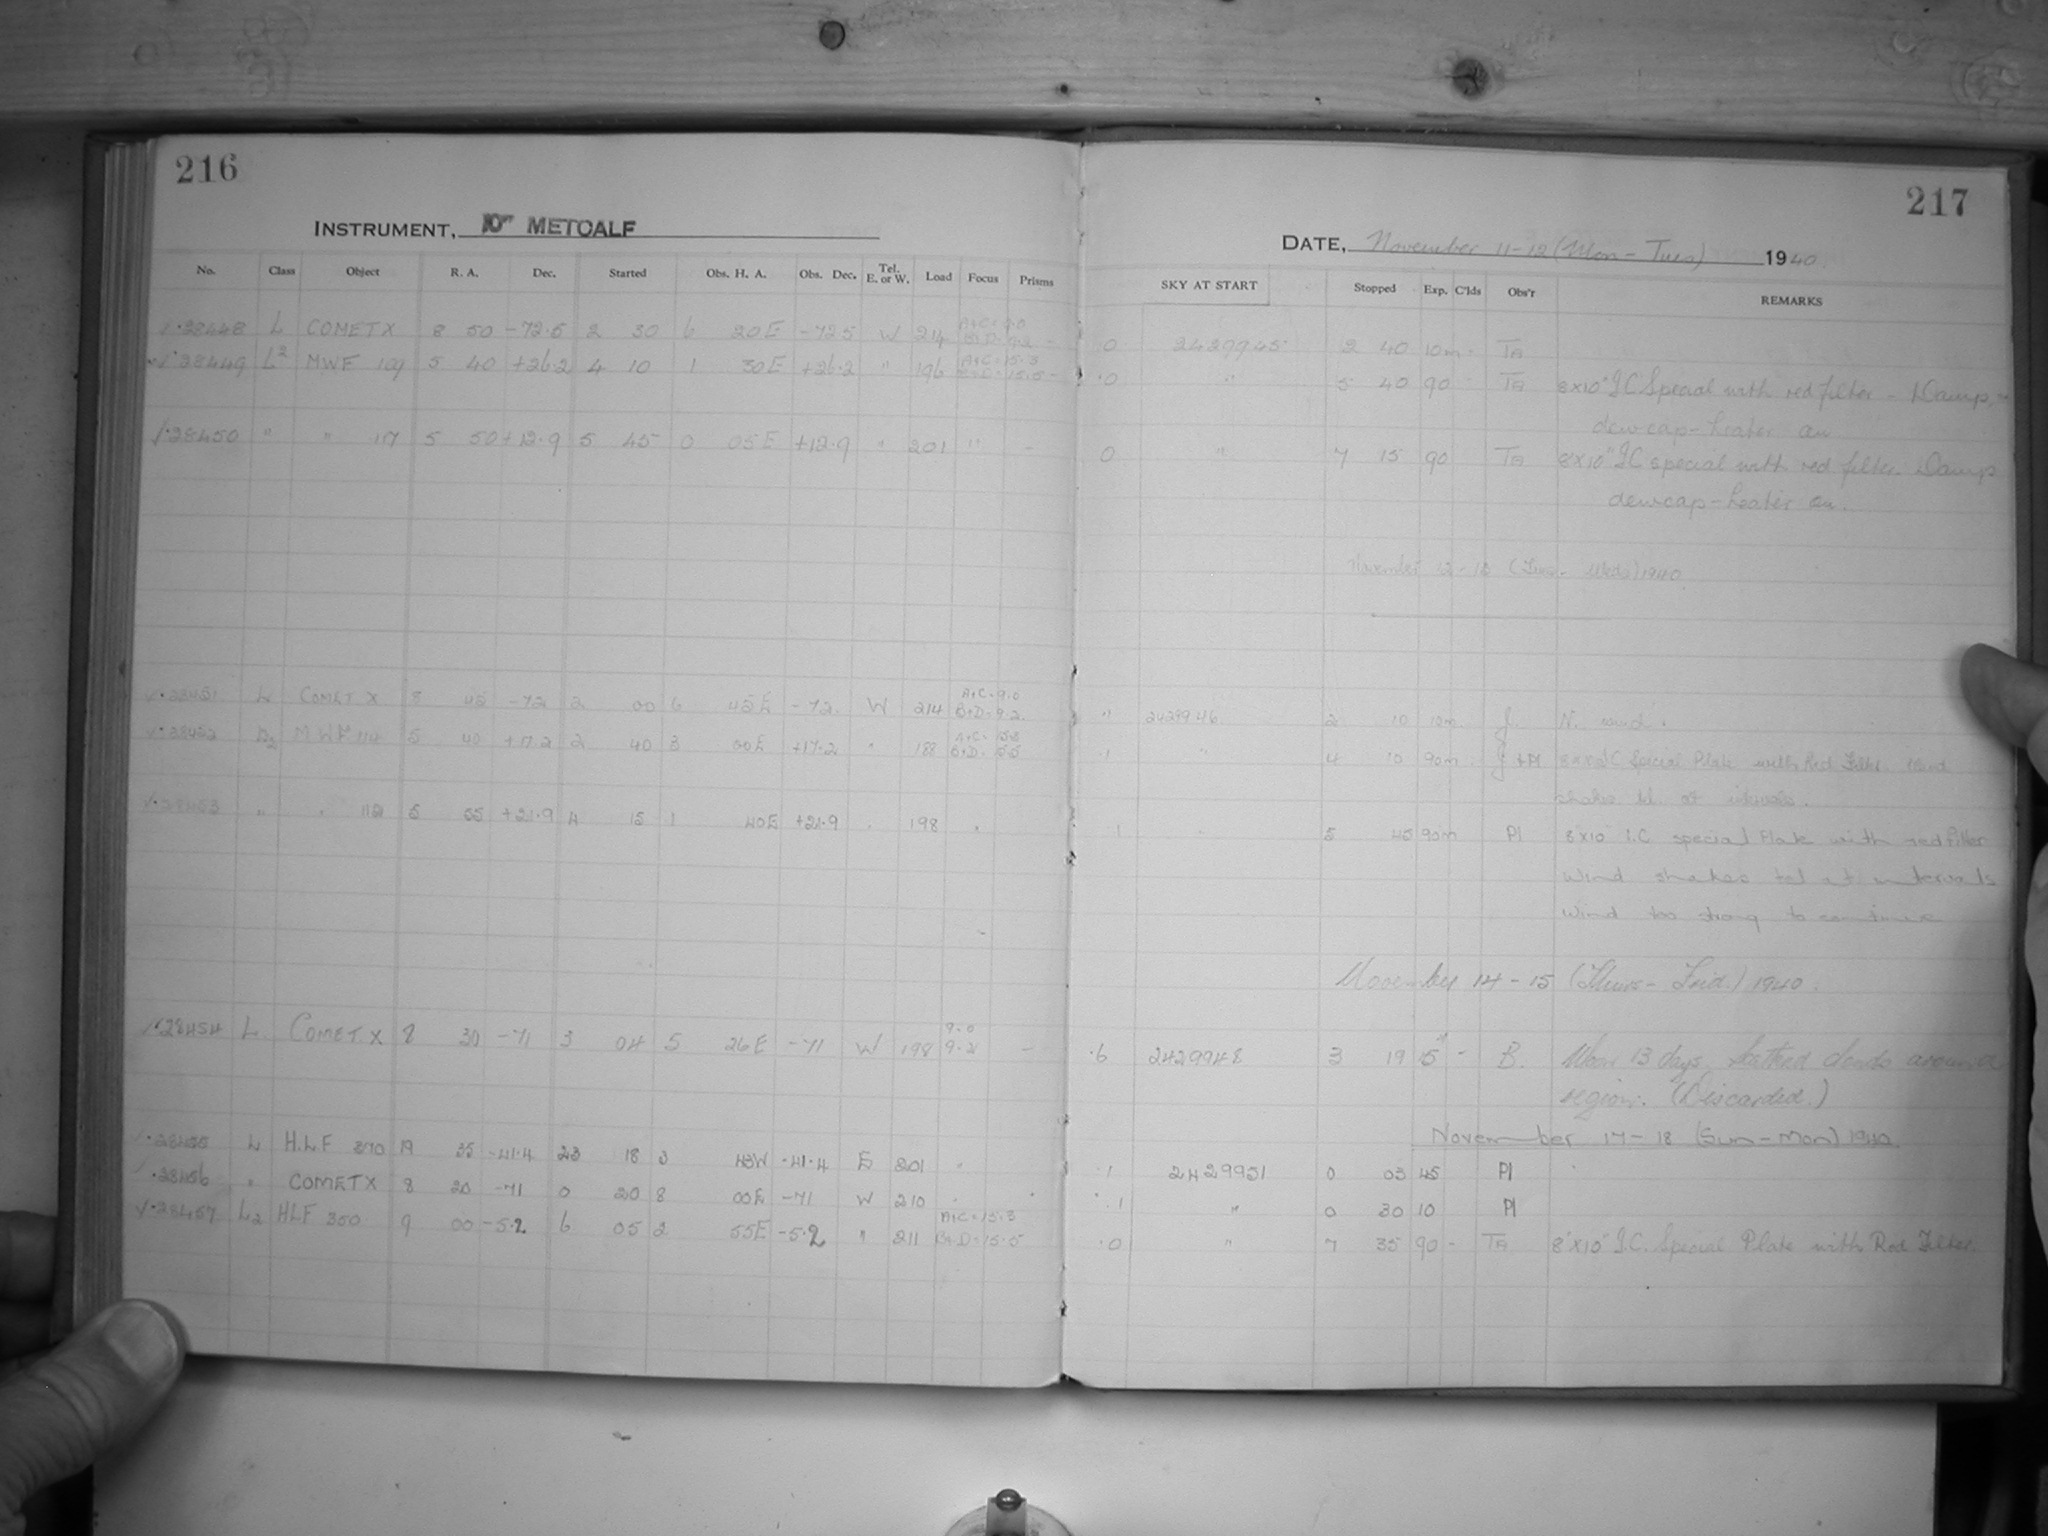 216
INSTRUMENT, 10" METCALF
No. Class Object R. A. Dec. Started Obs. H. A. Obs. Dec. Tel. E. or W. Load Focus Prisms
28448 L COMET X 8 50 -72.5 2 30 6 20E -72.5 W 214
28449 L2 MWF 109 5 40 +26.2 4 10 1 30E +26.2 " 196 A+C=15.3 B+D=15.5 -
28450 " " 117 5 50 +12.9 5 45 0 05E +12.9 " 201 " -
28451 L COMET X 8 45 -72 2 00 6 45E -72 W 214 A+C=9.0 B+D=9.2
28452 MWF 114 5 40 +17.2 2 40 3 00E +17.2 " 188 A+C=15.3 B+D=15.5
28453 " " 112 5 55 +21.9 4 15 1 40E +21.9 " 198 "
28454 L COMET X 8 30 -71 3 04 5 26E -71 W 198 9.0 9.2 -
28455 L H.L.F 370 19 35 -41.4 23 18 3 43W -41.4 E 201 "
28456 " COMET X 8 20 -71 0 20 8 00E -71 W 210 "
28457 L2 HLF 350 9 00 -5.2 6 05 2 55E -5.2 " 211 A+C=15.3 B+D=15.5
217
DATE, November 11-12 (Mon-Tues) 1940
SKY AT START Stopped Exp. C'lds Obs'r REMARKS
0 2429945 2 40 10m TB
.0 " 5 40 90 TB 8x10" I.C Special with red filter - Damp -
dewcap-heater on
0 " 7 15 90 TB 8x10" I.C special with red filter. Damp
dewcap-heater on.
November 12-13 (Tues-Weds) 1940
" 2429946 2 10 10m J. N. wind.
.1 " 4 10 90m J+Pl 8x10" I.C Special Plate with Red Filter. Wind
shakes tel. at intervals.
.1 5 45 90m Pl 8x10 I.C special Plate with red filter
wind shakes tel at intervals
wind too strong to continue
November 14-15 (Thurs-Frid.) 1940.
.6 2429948 3 19 15m - B. Moon 13 days, scattered clouds around
region. (Discarded.)
November 17-18 (Sun-Mon) 1940.
.1 2429951 0 03 45 Pl
.1 " 0 30 10 Pl
.0 " 7 35 90 - TB 8"x10" I.C. Special Plate with Red Filter.